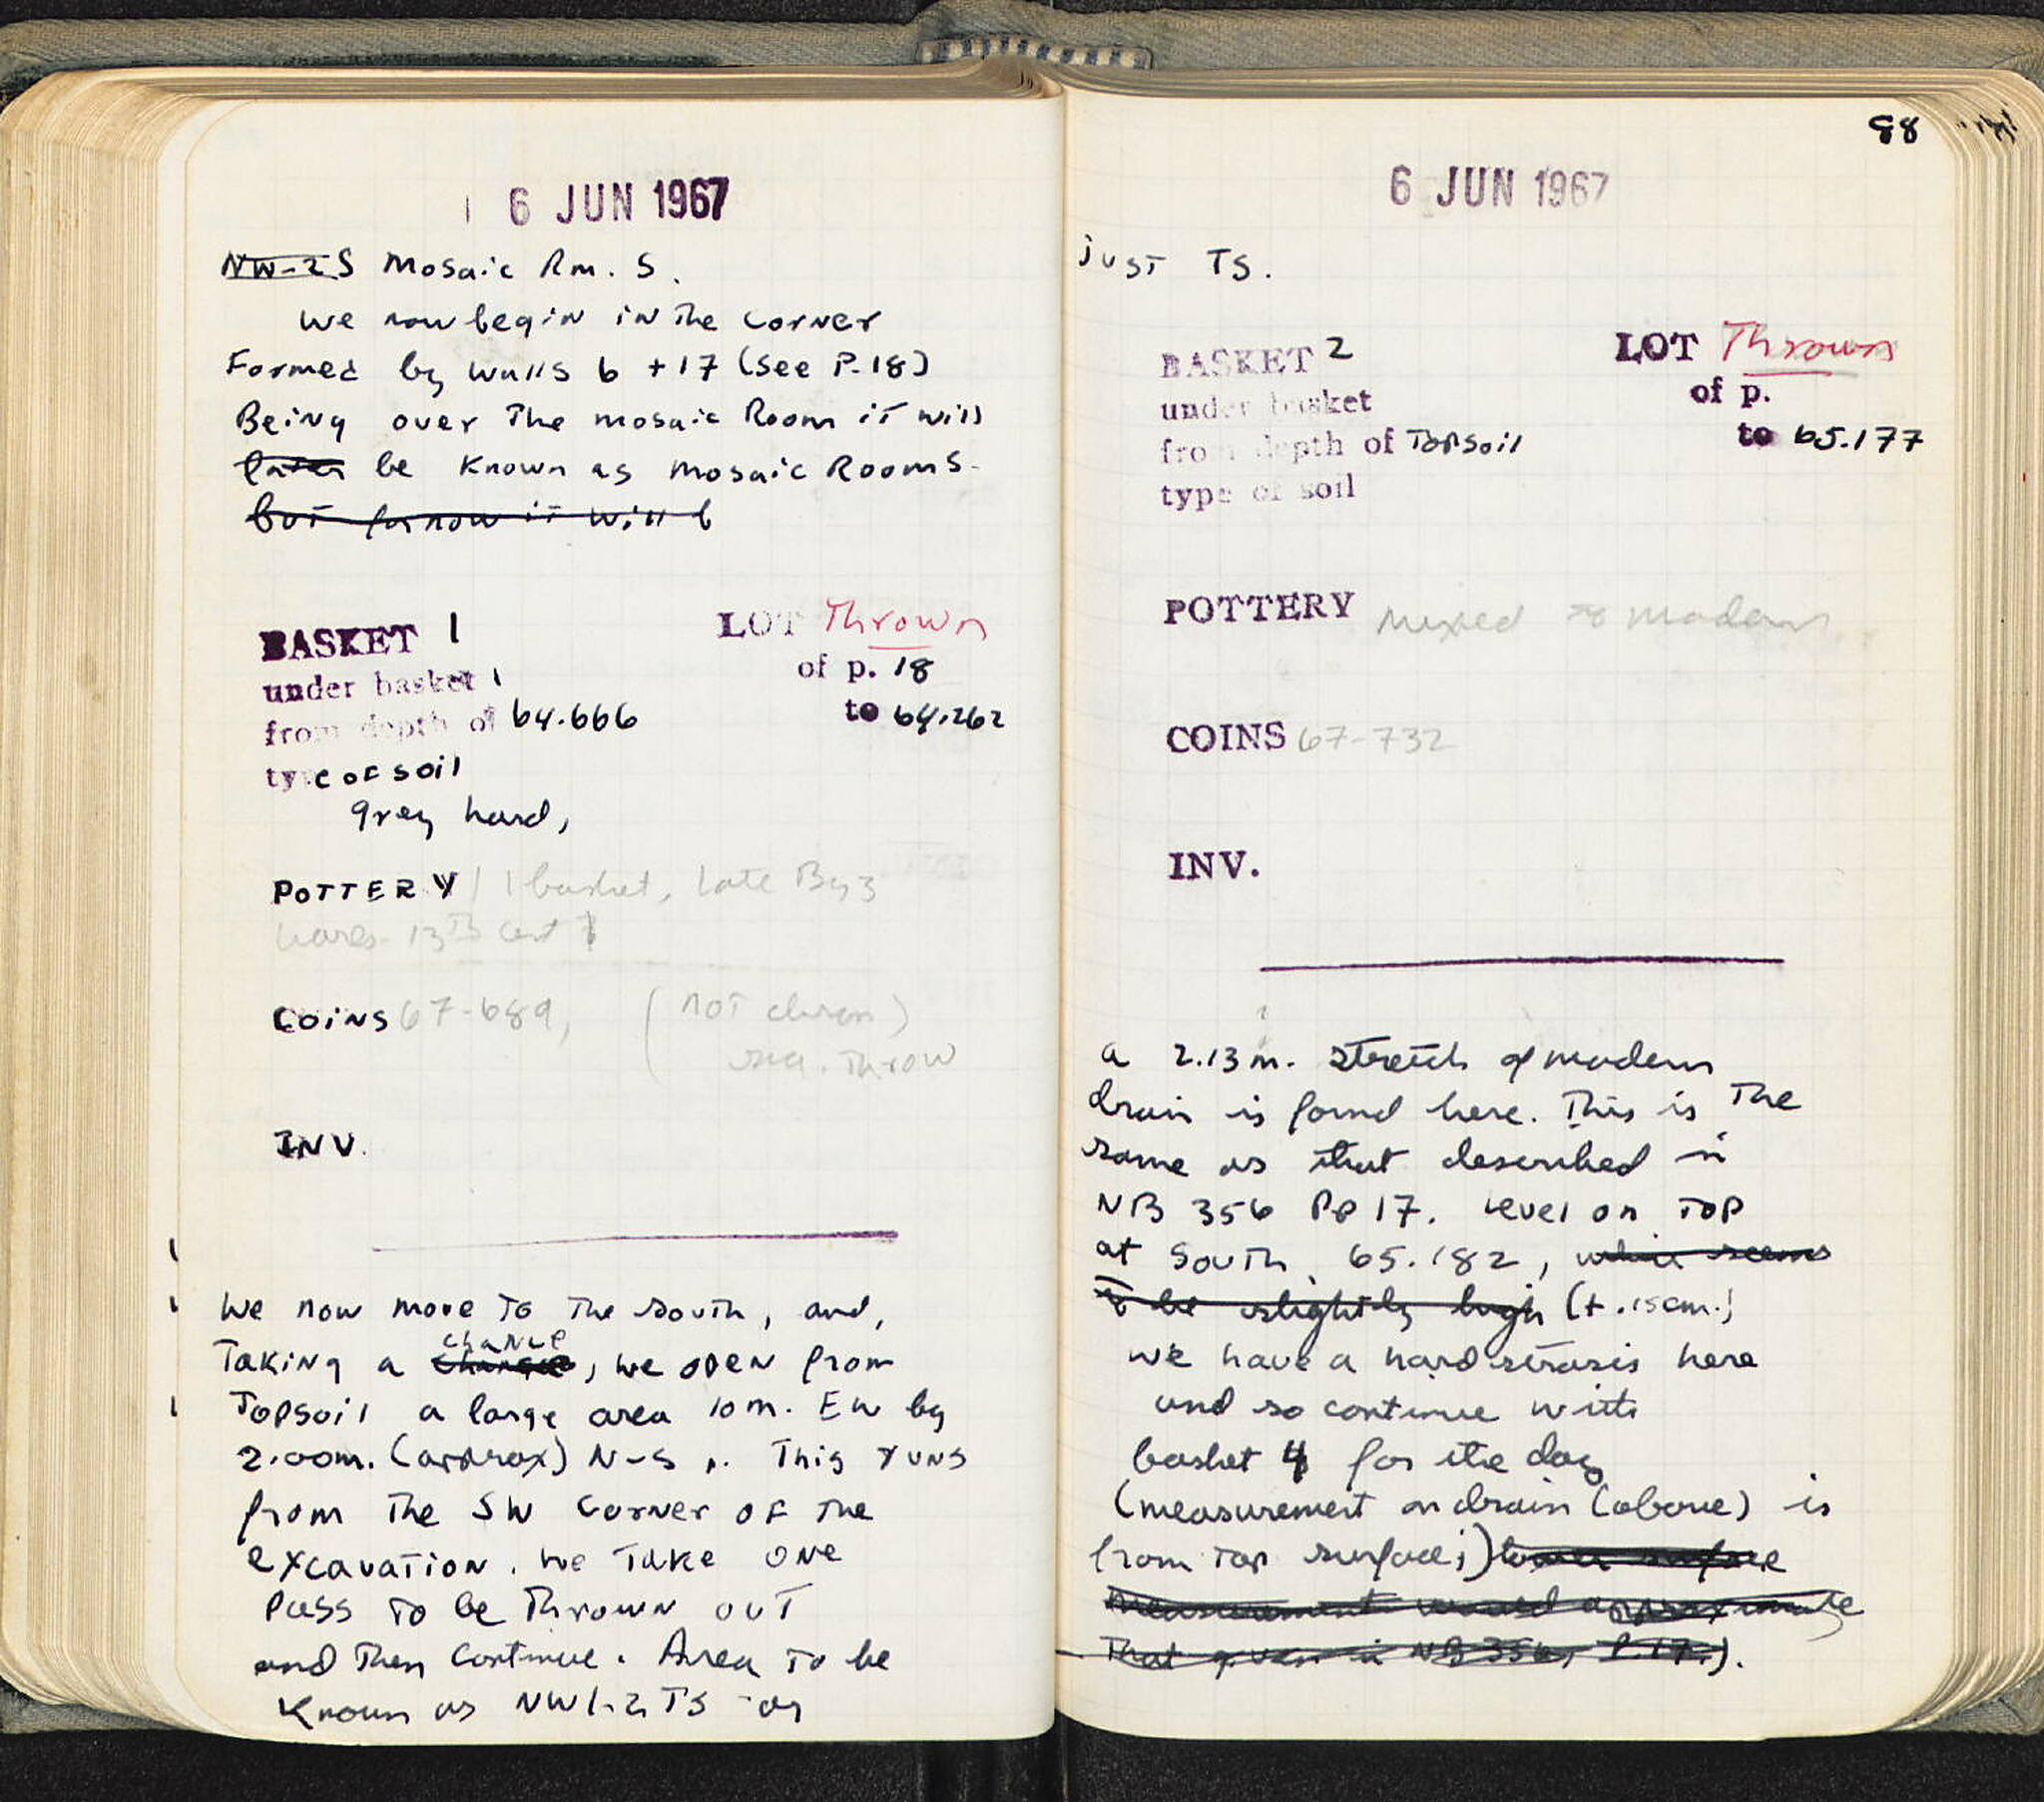 6 JUN 1967
NW-2 S Mosaic Rm. S.
we now begin in the corner
Formed by walls 6 + 17 (see P. 18)
Being over the mosaic Room it will
later be known as mosaic Room S.
but for now it will b
BASKET 1
LOT Thrown
under basket 1
of p. 18
from depth of 64.666
to 64.262
type of soil
grey hard,
POTTERY 1 basket, late Byz
wares 13th cent
COINS 67-689, (not
throw
INV.
we now move to the south, and,
chance
Taking a , we open from
Topsoil a large area 10m. EW by
2.00m. (approx) N-S. This runs
from the SW corner of the
excavation. we take one
pass to be thrown out
and then continue. Area to be
known as NW 1-2 TS or
88
6 JUN 1967
just TS.
BASKET 2
LOT Thrown
under basket
of p.
from depth of Topsoil
to 65.177
type of soil
POTTERY mixed to modern
COINS 67-732
INV.
a 2.13 m. stretch of modern
drain is found here. This is the
same as that described in
NB 356 Pp 17. Level on top
at South 65.182, which seems
to be slightly high (+ .15cm.)
we have a hard strosis here
and so continue with
basket 4 for the day
(measurement on drain (above) is
from top surface;) lower surface
measurement would approximate
that given in NB 356, P. 17.).